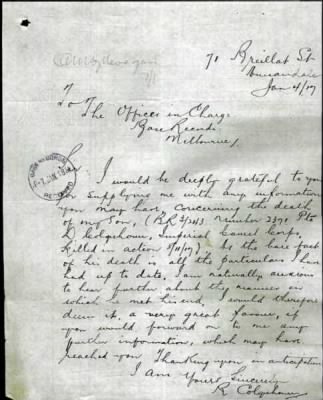 71 Breillat St
Annandale
Jan 4/17
To/
The Officer in Charge
Base Records
Melbourne
BASE RECORDS
RECEIVED
Sir
I would be deeply grateful to you
for supplying me with any information
you may have concerning the death
of my Son, (B.R. Number Pte
D Colquhoun, Imperial Camel Corps,
Killed in action As the bare fact
of his death is all the particulars I have
had up to date, I am naturally anxious
to hear further about the manner in
which he met his end, I would therefore
deem it, a very great favour, if
you would forward on to me any
further information, which may have
reached you Thanking you in anticipation
I Am Yours Sincerely
R Colquhoun